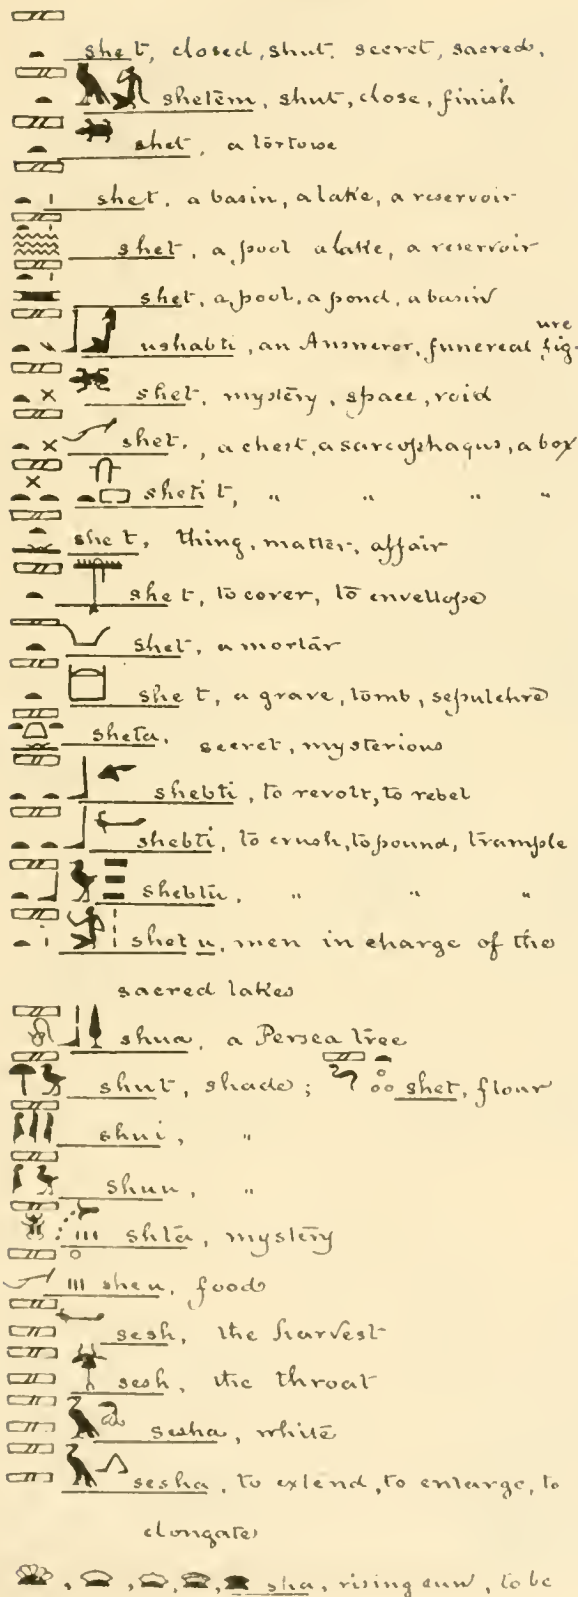 she t, closed, shut, secret, sacred,
shetem, shut, close, finish
shet, a tortoise
shet, a basin, a lake, a reservoir
shet, a pool a lake, a reservoir
shet, a pool, a pond, a basin
ushabti, an Answerer, funereal fig-ure
shet, mystery, space, void
shet., a chest, a sarcophagus, a box
sheti t, " " " "
she t, thing, matter, affair
she t, to cover, to envellope
shet, a mortar
she t, a grave, tomb, sepulchre
sheta, secret, mysterious
shebti, to revolt, to rebel
shebti, to crush, to pound, trample
shebtu, " " "
shet u, men in charge of the
sacred lakes
shua, a Persea tree
shut, shade; shet, flour
shui, "
shuu, "
shta, mystery
sheu, food
sesh, the harvest
sesh, the throat
sesha, white
sesha, to extend, to enlarge, to
elongate
, , , , sha, rising sun, to be